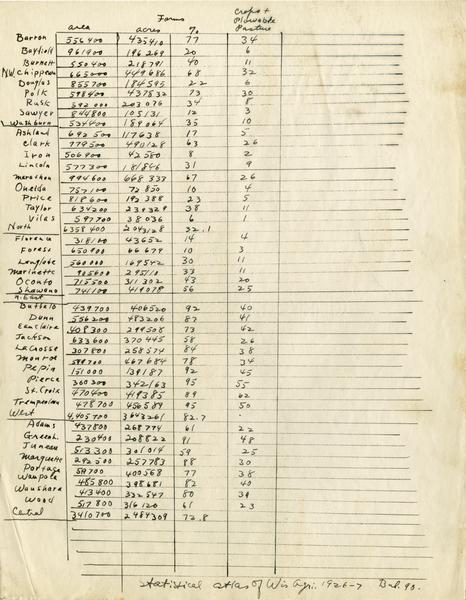 Farms
Crops +
Plowable
Pasture
area acres %
Barron 556400 435410 77 34
Bayfield 961900 196269 20 6
Burnett 550400 218791 40 11
N.W. Chippewa 665000 449686 68 32
Douglas 855700 184595 22 6
Polk 598400 437832 73 30
Rusk 592000 203076 34 8
Sawyer 844800 105131 12 3
Washburn 534400 189064 35 10
Ashland 692500 117638 17 5
Clark 779500 490128 63 26
Iron 506900 42580 8 2
Lincoln 577300 181846 31 9
Marathon 994600 668333 67 26
Oneida 72850 10 4
Price 818600 192388 23 5
Taylor 634200 239329 38 11
Vilas 597700 38036 6 1
North 6358400 2043128 32.1
Florence 318100 43652 14 4
Forest 650900 66679 10 3
Langlade 560000 169542 30 11
Marinette 905600 295110 33 11
Oconto 715500 311302 43 20
Shawano 741100 419078 56 25
N. East
Buffalo 439700 406520 92 40
Dunn 556200 483206 87 41
Eau Claire 408300 299508 73 42
Jackson 633600 370445 58 26
LaCrosse 307800 258574 84 38
Monroe 599700 467684 78 34
Pepin 151000 139187 92 45
Pierce 360300 342163 95 55
St. Croix 470400 419385 89 62
Trempealeau 478700 456589 95 50
West 4,405700 3643261 82.7
Adams 437800 268774 61 22
Green L. 230400 208822 91 48
Juneau 513300 301014 59 25
Marquette 292500 257783 88 30
Portage 400568 77 38
Waupaca 485800 398681 82 40
Waushara 413400 332547 80 39
Wood 517800 316120 61 23
Central 3410700 2484309 72.8
Statistical atlas of Wis Agri. 1926-7 Bul. 90.